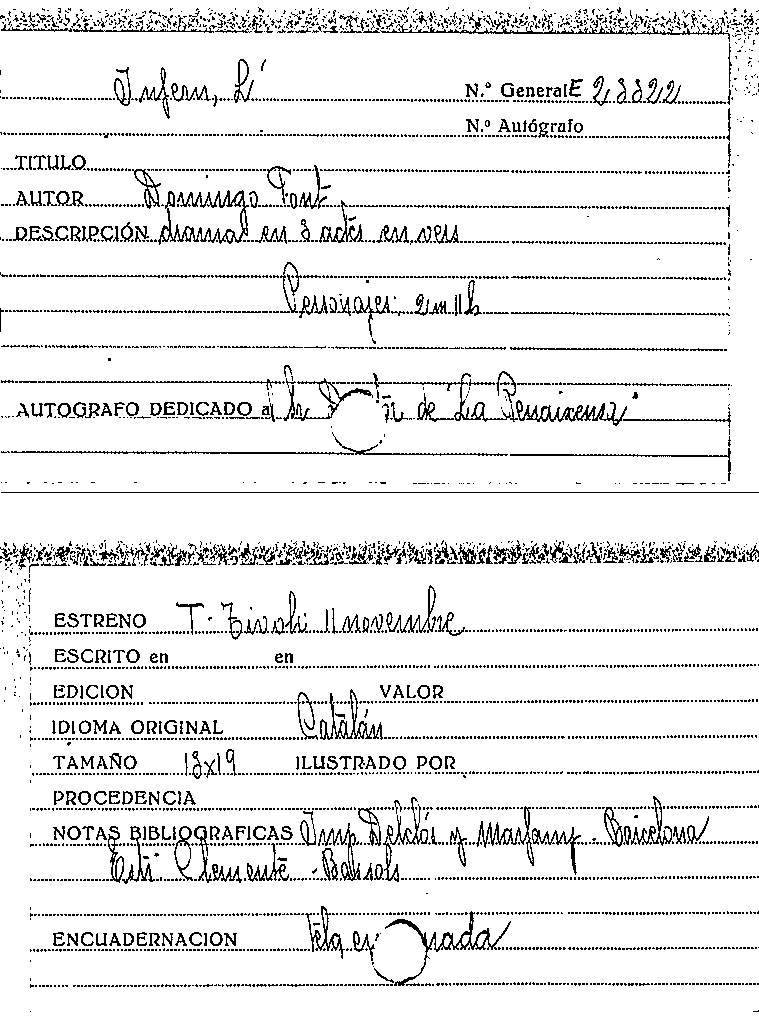 Infern, L'
N.º General E 23322
N.º Autógrafo
TITULO
AUTOR Domingo Font
DESCRIPCIÓN drama en 3 actes en vers
Personajes: 2 m 11 h
AUTOGRAFO DEDICADO al Sr de "La Renaixensa"
ESTRENO T. Tivoli 11 novembre
ESCRITO en en
EDICION VALOR
IDIOMA ORIGINAL Catalán
TAMAÑO 13x19 ILUSTRADO POR
PROCEDENCIA
NOTAS BIBLIOGRAFICAS Imp Delclós y Marfany - Barcelona
Clemente
ENCUADERNACION tela